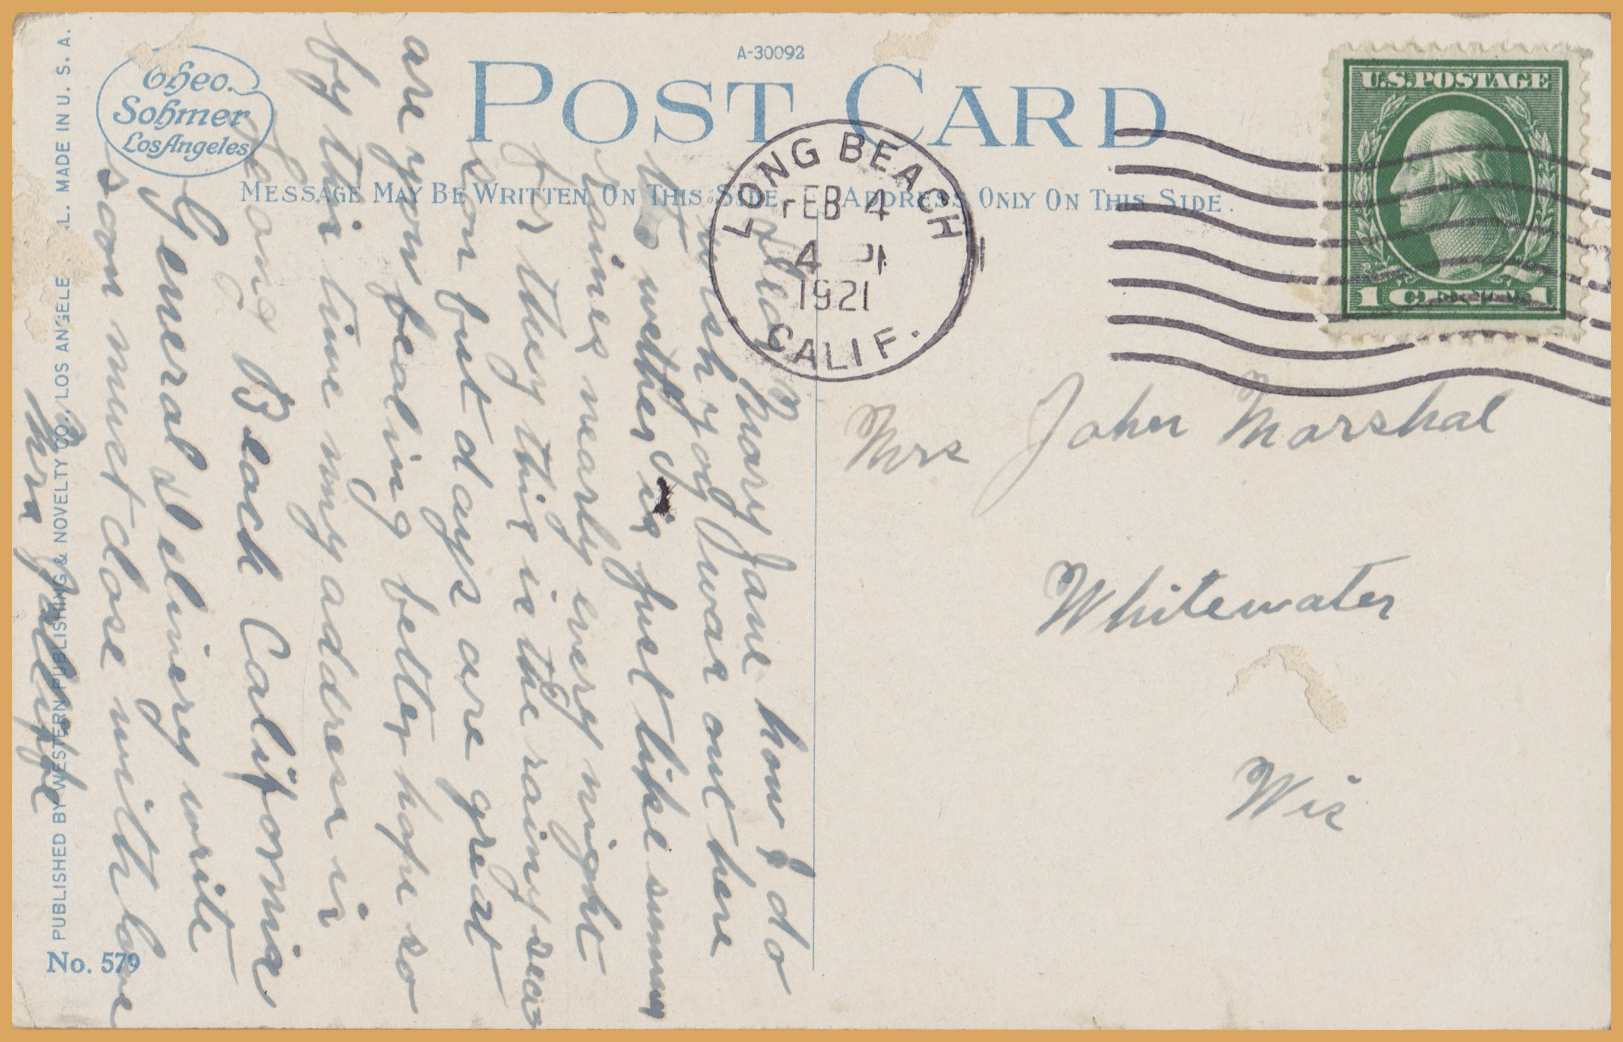 A-30092
POST CARD
Theo.
Sohmer
Los Angeles
MESSAGE MAY BE WRITTEN ON THIS SIDE. ADDRESS ONLY ON THIS SIDE.
U.S. POSTAGE
1 CENT 1
LONG BEACH
FEB 4
4 P
1921
CALIF.
Mrs John Marshal
Whitewater
Wis
Dear Mary Jane how I do
wish you was out here
the wether is just like summer
raines nearly every night
for they this is the rainy seas
son but days are great
are you fealing better hope so
by this time my address is
Long Beach California
General Delivery write
soon must close with love
Mrs
PUBLISHED BY WESTERN PUBLISHING & NOVELTY CO., LOS ANGELE L. MADE IN U. S. A.
No. 579